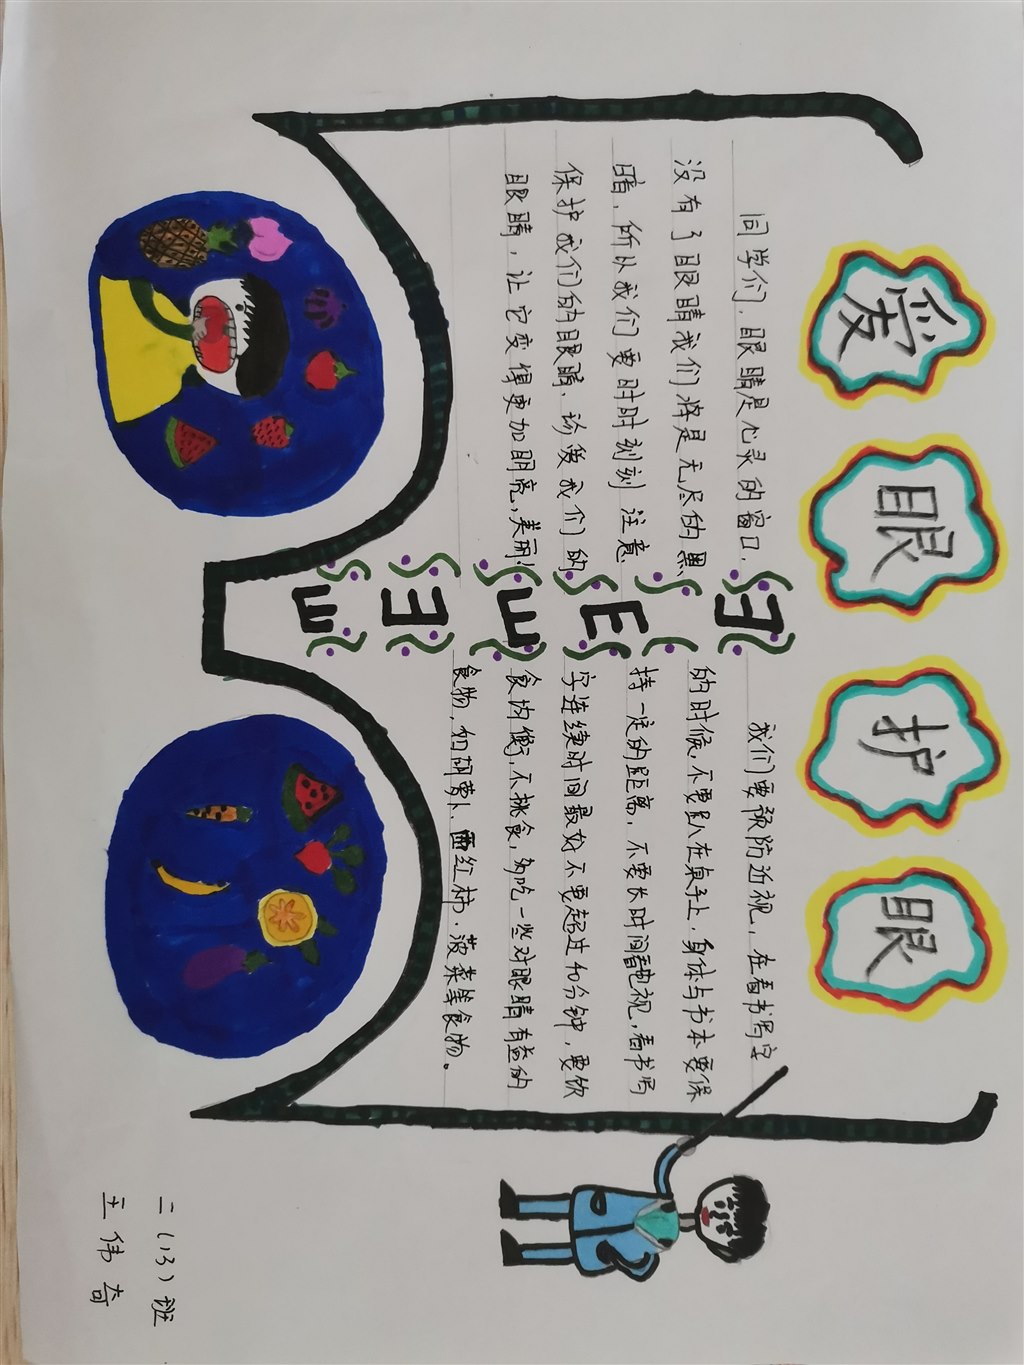 爱眼护眼
同学们，眼睛是心灵的窗口，
没有了眼睛我们将是无尽的黑
暗，所以我们要时时刻刻注意
保护我们的眼睛、珍爱我们的
眼睛，让它变得更加明亮、美丽！
E
E
E
E
E
我们要预防近视，在看书写字
的时候，不要趴在桌子上，身体与书本要保
持一定的距离，不要长时间看电视，看书写
字连续时间最好不要超过40分钟，要饮
食均衡，不挑食，多吃一些对眼睛有益的
食物，如胡萝卜、西红柿、菠菜等食物。
二（13）班
王伟奇